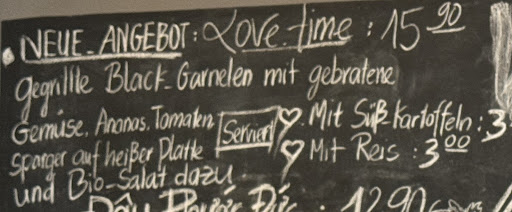 • NEUE-ANGEBOT: Love-time: 15 90
Gegrillte Black-Garnelen mit gebratene
Gemüse, Ananas, Tomaten Serviert ♡ Mit Süß Kartoffeln: 3
Sparger auf heißer Platte ♡ Mit Reis: 3 00
und Bio-Salat dazu.
12 90